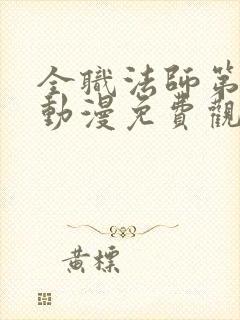 全職法師第
動漫免費觀
黃標